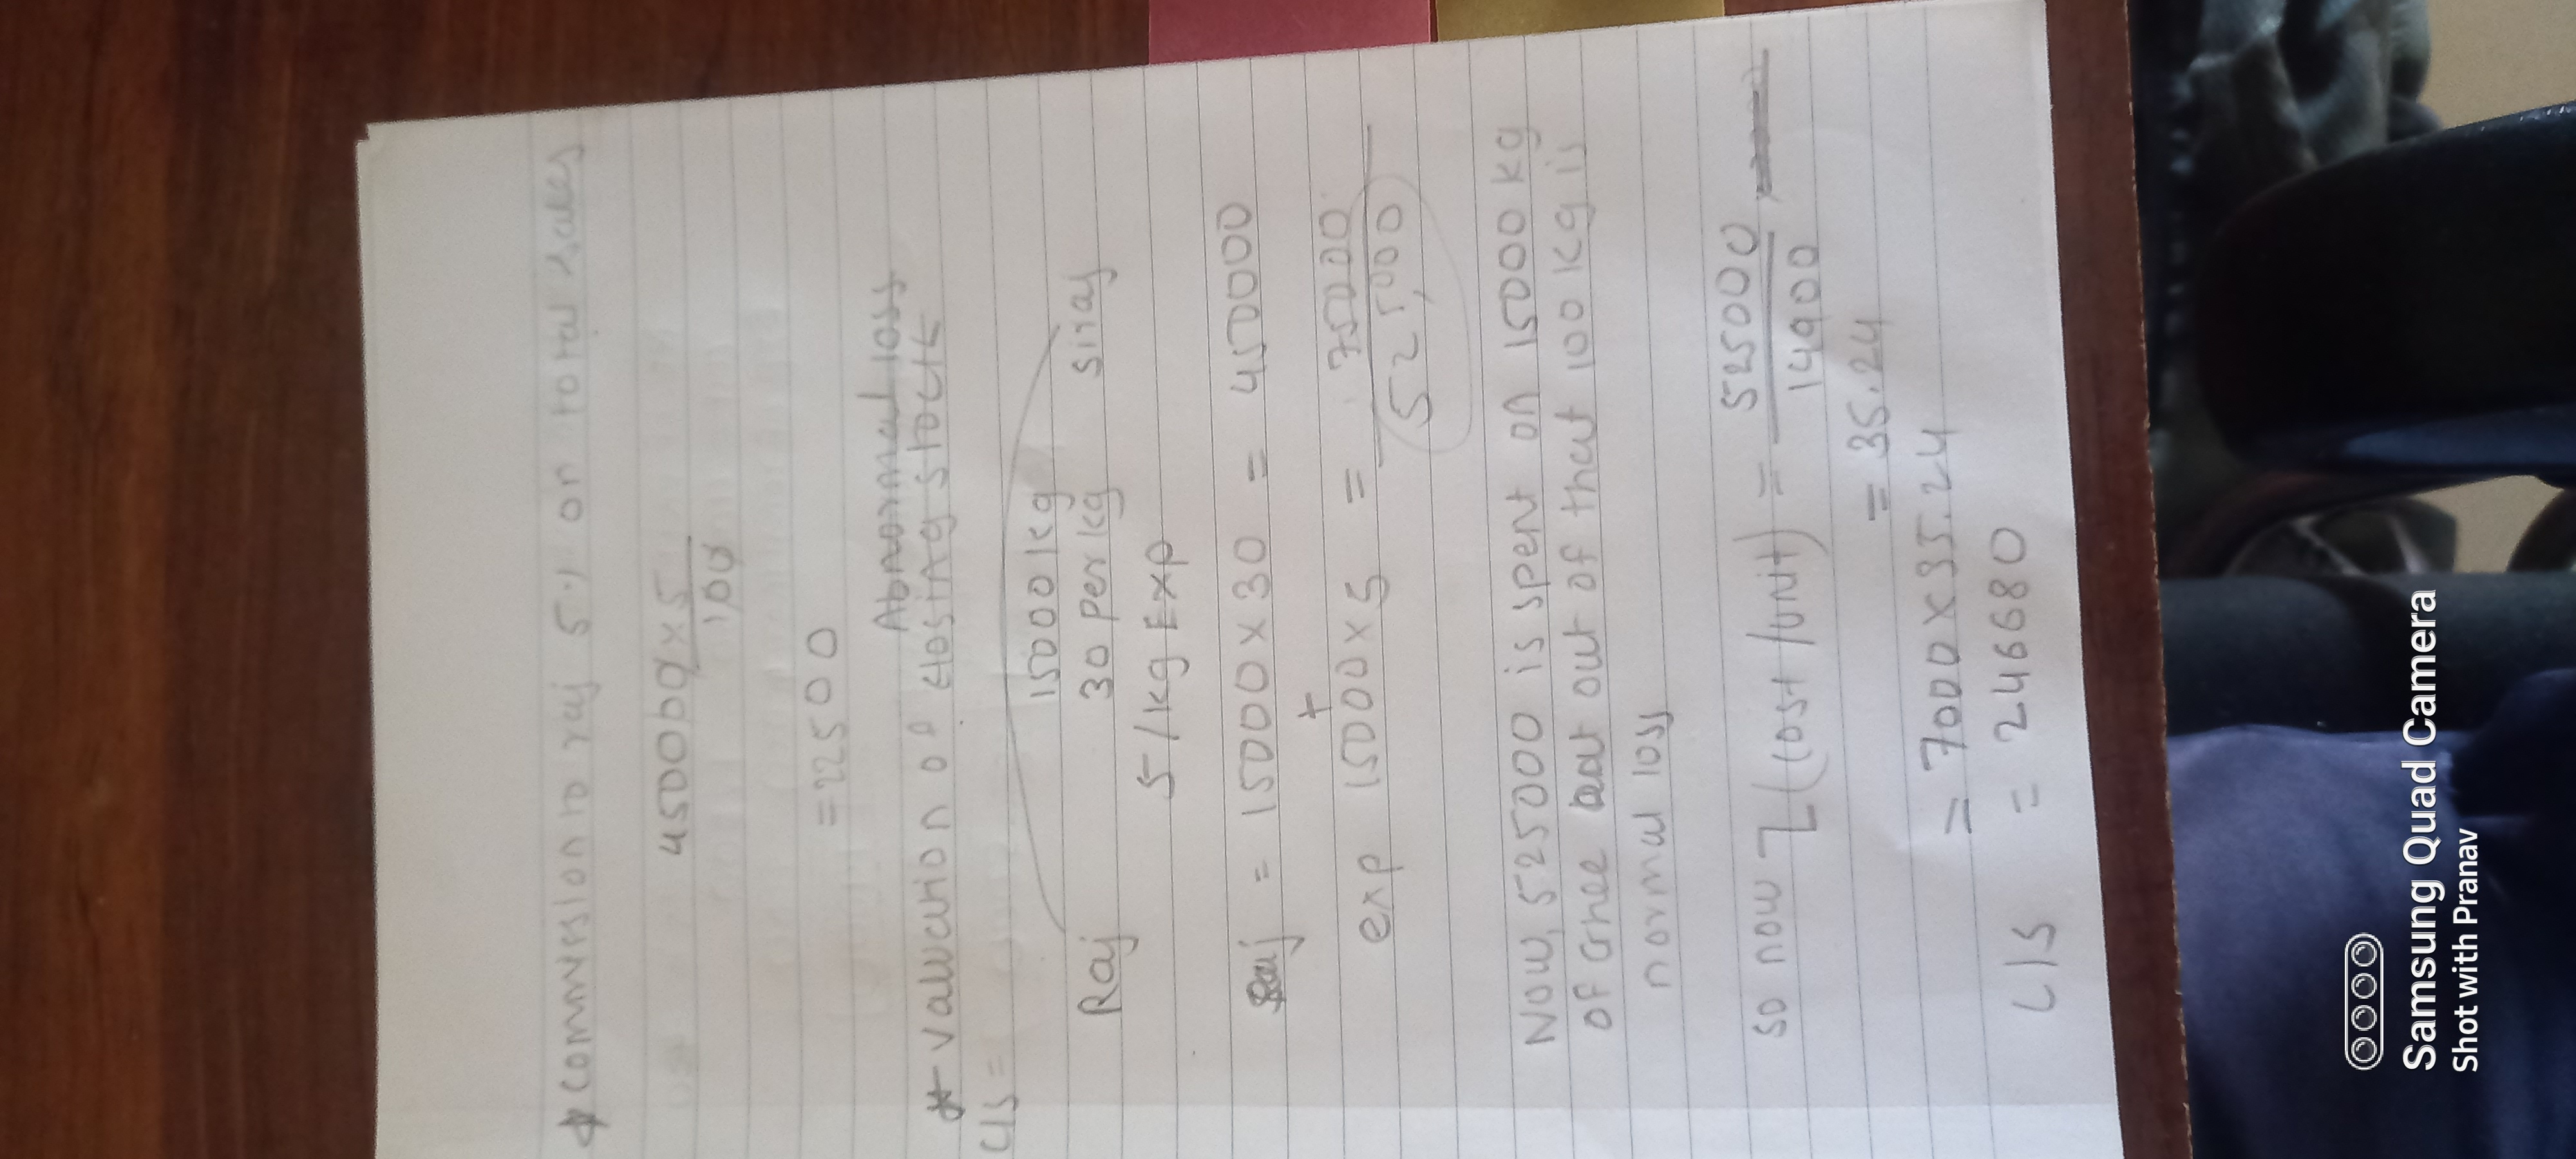 * commission to raj 5% on total sales
450000 x 5
100
= 22500
Abnormal loss
* valuation of closing stock
C/S =
15000 kg
Raj 30 per kg siraj
5/kg Exp
Raj = 15000 x 30 = 450000
+
exp 15000 x 5 = 75000
525,000
Now, 525000 is spent on 15000 kg
of Ghee out of that 100 kg is
normal loss
so now (cost/unit) = 525000
14900
= 35.24
= 7000 x 35.24
C/S = 246680
Samsung Quad Camera
Shot with Pranav